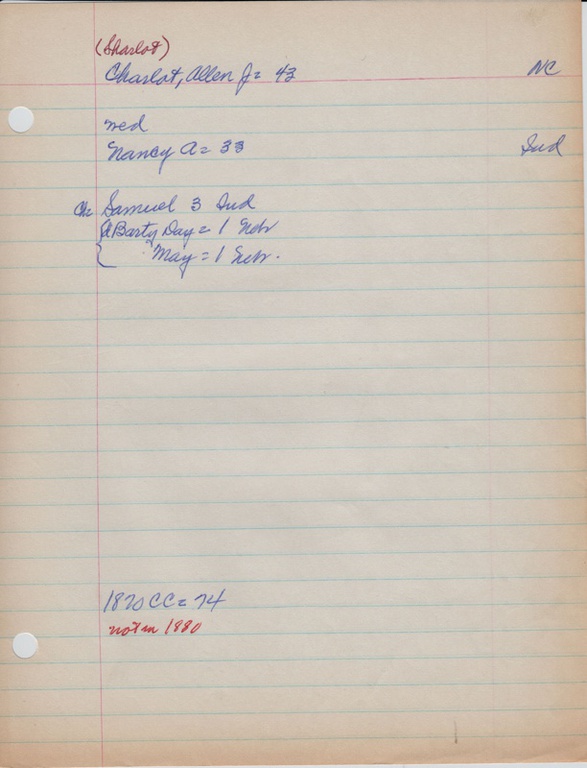 (Sharlot)
Charlot, Allen J = 43 NC
med
Nancy A = 33 Ind
Ch = Samuel 3 Ind
Barty Day = 1 Nebr
" May = 1 Nebr.
1870 CC = 74
not in 1880